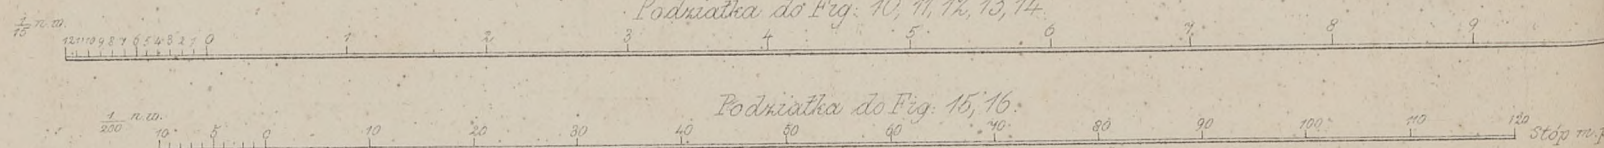 Podziałka do Fig: 10, 11, 12, 13, 14.
1/15 n.w.
12 11 10 9 8 7 6 5 4 3 2 1 0 1 2 3 4 5 6 7 8 9
Podziałka do Fig: 15, 16.
1/200 n.w.
10 5 0 10 20 30 40 50 60 70 80 90 100 110 120 Stóp m.p